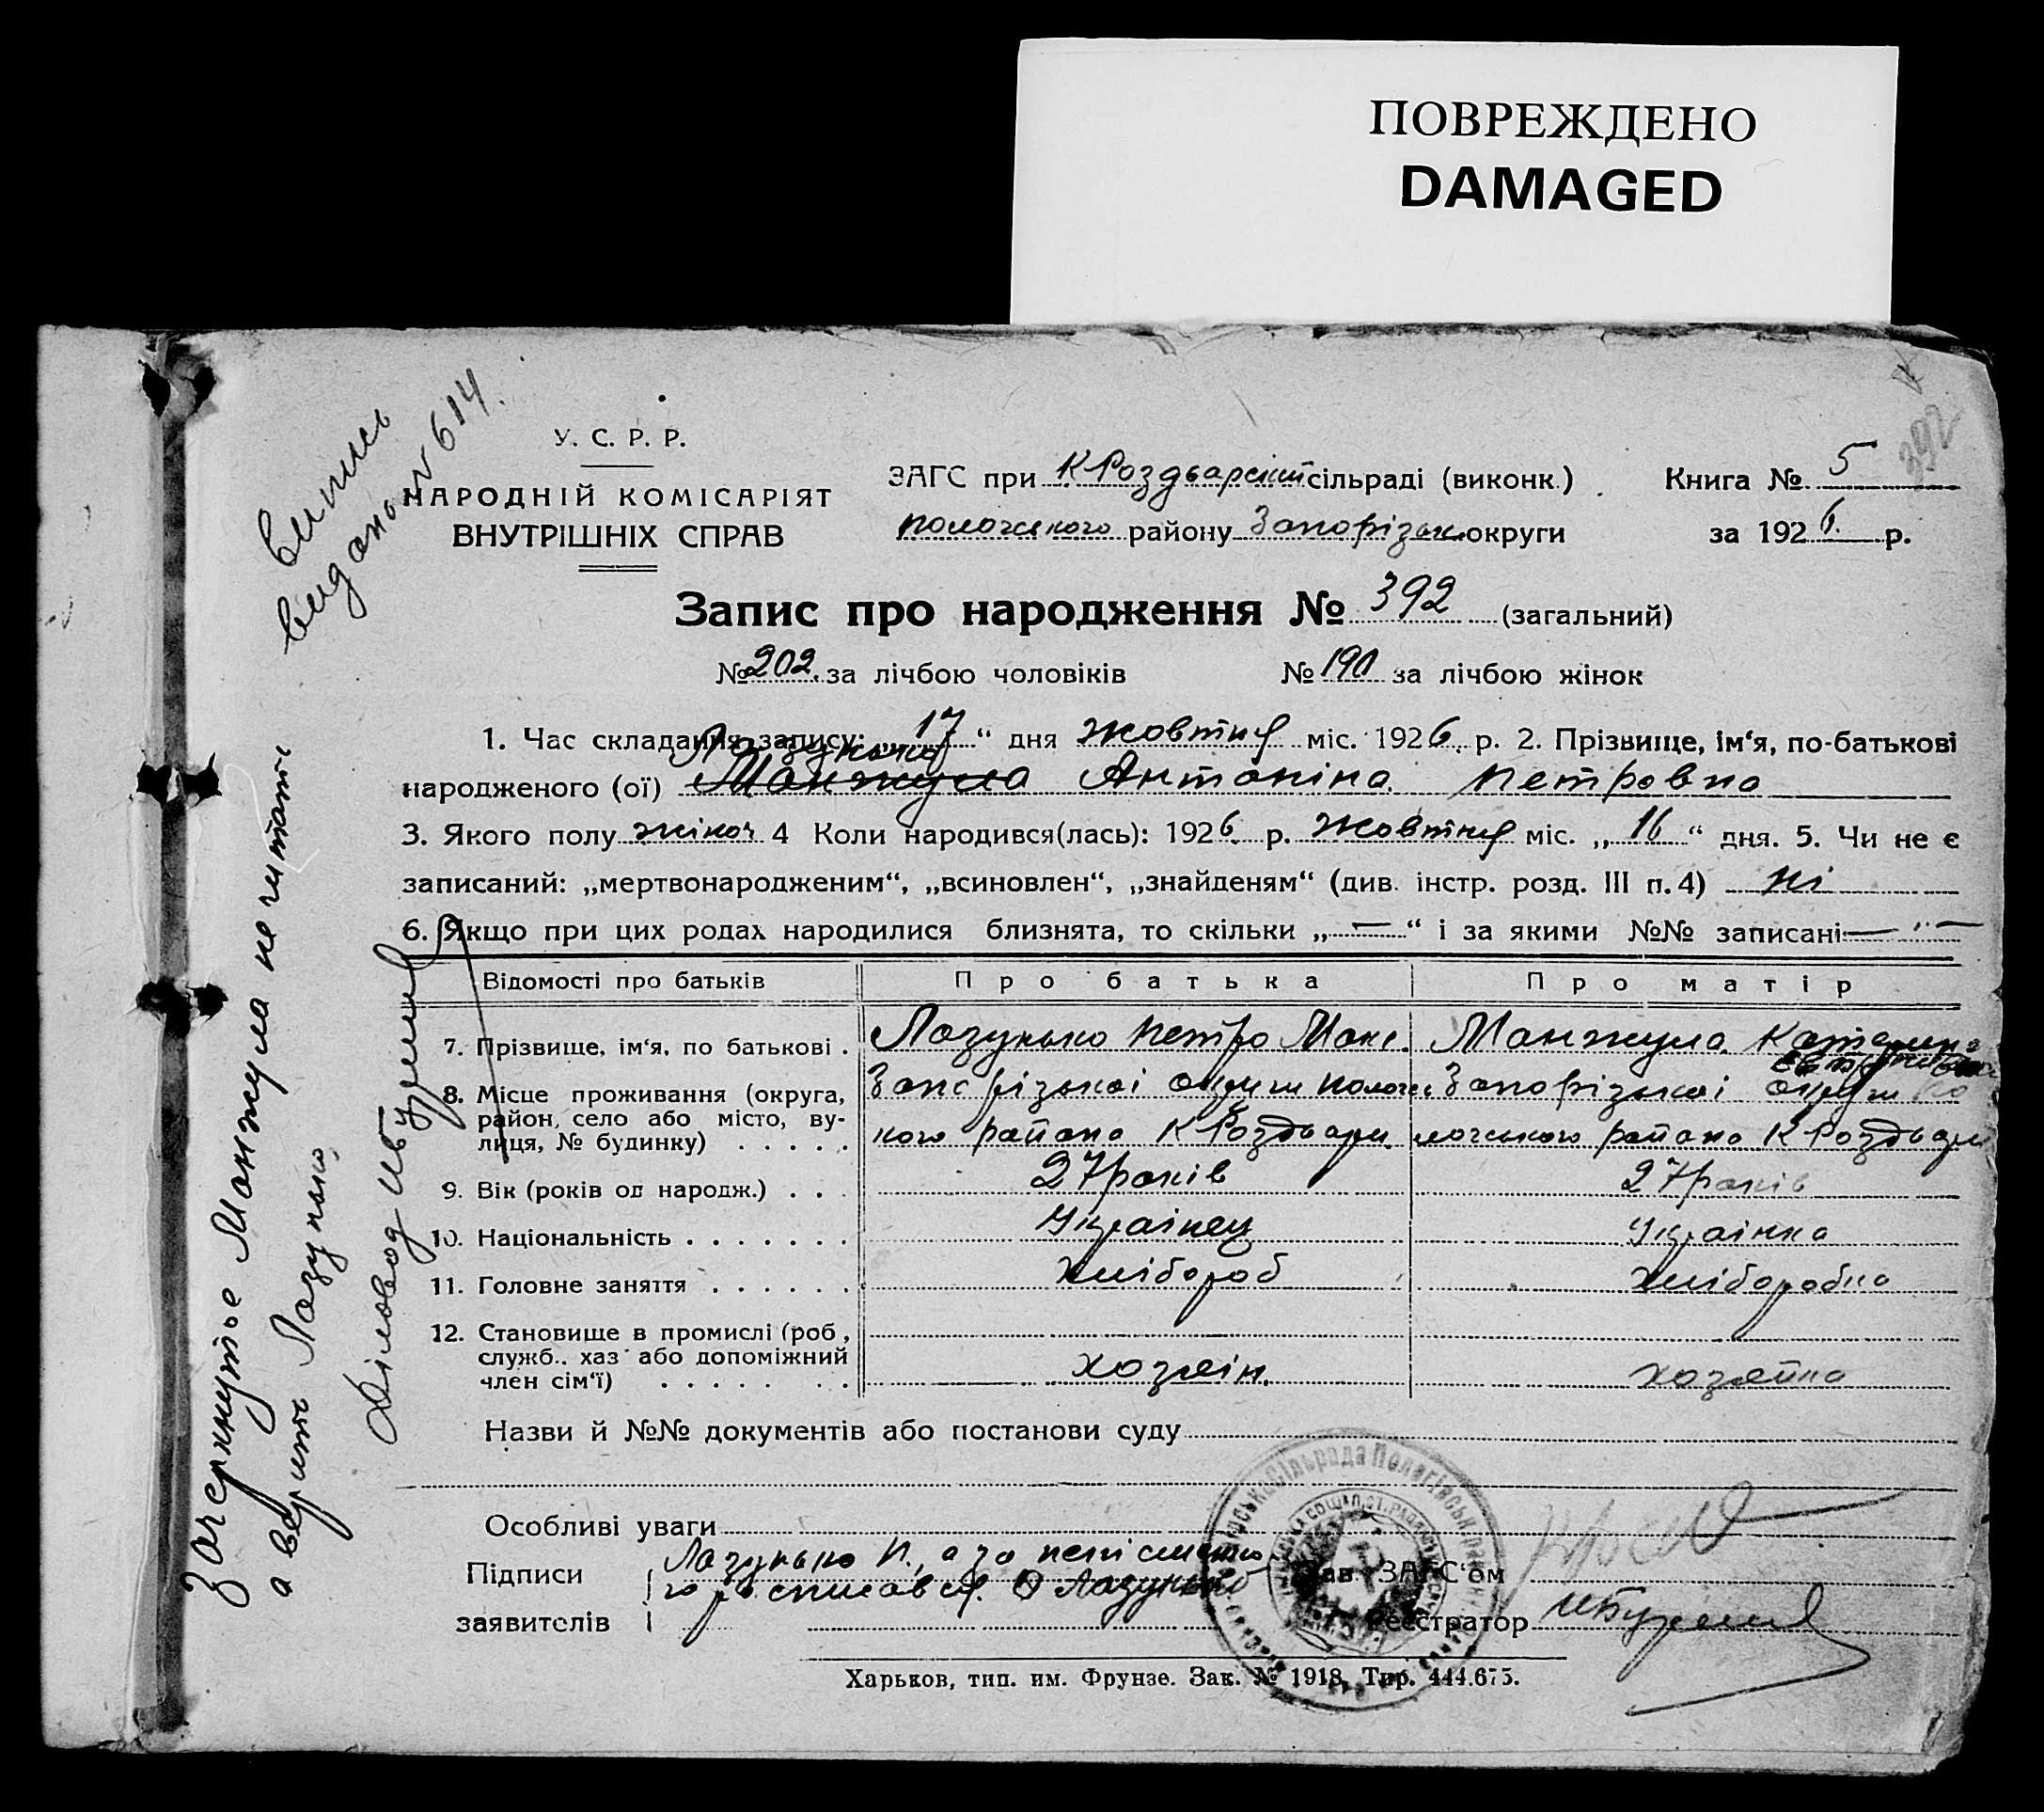 ПОВРЕЖДЕНО
DAMAGED
392
Випись
видано N 614.
У. С. Р. Р.
НАРОДНІЙ КОМІСАРІЯТ
ВНУТРІШНІХ СПРАВ
ЗАГС при К Роздварскій сільраді (виконк.)
пологського району Запорізьк. округи
Книга № 5
за 1926. р.
Запис про народження № 392 (загальний)
№ 202. за лічбою чоловіків № 190 за лічбою жінок
1. Час складання запису: „17“ дня жовтня міс. 1926. р. 2. Прізвище, ім‘я, по-батькові
Лазунько
народженого (ої) Манжула Антоніна Петровна
3. Якого полу жіноч 4 Коли народився(лась): 1926. р. жовтня міс. „16“ дня. 5. Чи не є
записаний: „мертвонародженим“, „всиновлен“, „знайденям“ (див. інстр. розд. III п. 4) ні
6. Якщо при цих родах народилися близнята, то скільки „—“ і за якими №№ записані — „ —
Відомості про батьків Про батька Про матір
7. Прізвище, ім‘я, по батькові . Лазунько Петро Макс. Манжула Катерина
8. Місце проживання (округа, район, село або місто, вулиця, № будинку) . . . . .
Запорізькоі округи пологс
кого района К Роздвари
Запорізькоі округи по
логського района К Роздвари
9. Вік (років од народж.) . . . 27 років 27 років
10. Національність . . . . . . . Украінец Украінка
11. Головне заняття . . . . . . Хлібороб Хліборобка
12. Становище в промислі (роб, служб.. хаз або допоміжний член сім‘ї) . . . . . . . хозяін. хозяйка
Назви й №№ документів або постанови суду
Особливі уваги
Підписи
заявителів
Лазунько П., а за неписьмено
го росписався О Лазунько
Зав ЗАГС‘ом
Реєстратор ИБурлив
Харьков, тип. им. Фрунзе. Зак. № 1918, Тир. 444.675.
Зачеркнутое Манжула не читать
а верить Лазунько
Діловод